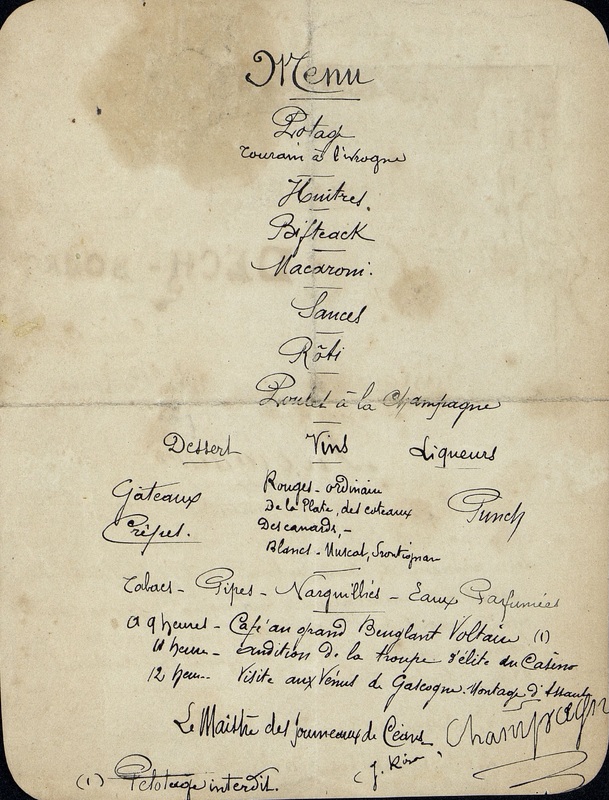 Menu
Potage
Tourain à l'ivrogne
Huitres.
Bifteack
Macaroni.
Sauces
Rôti
Poulet à la Champagne
Dessert Vins Liqueurs
Gâteaux
Crêpes.
Rouges - ordinaire
De la Plate, des coteaux
Des canards, -
Blancs - Muscat, Frontignan
Punch
Tabacs - Pipes - Narguilliés - Eaux Parfumées
à 9 heures - Café au grand Beuglant Voltaire (1)
11 heures - audition de la troupe d'élite du Casino
12 heures - Visite aux Vénus de Gascogne. Montage d'Assaut
Le Maistre des fourneaux de Céans
(J.
(1) Pelotage interdit.